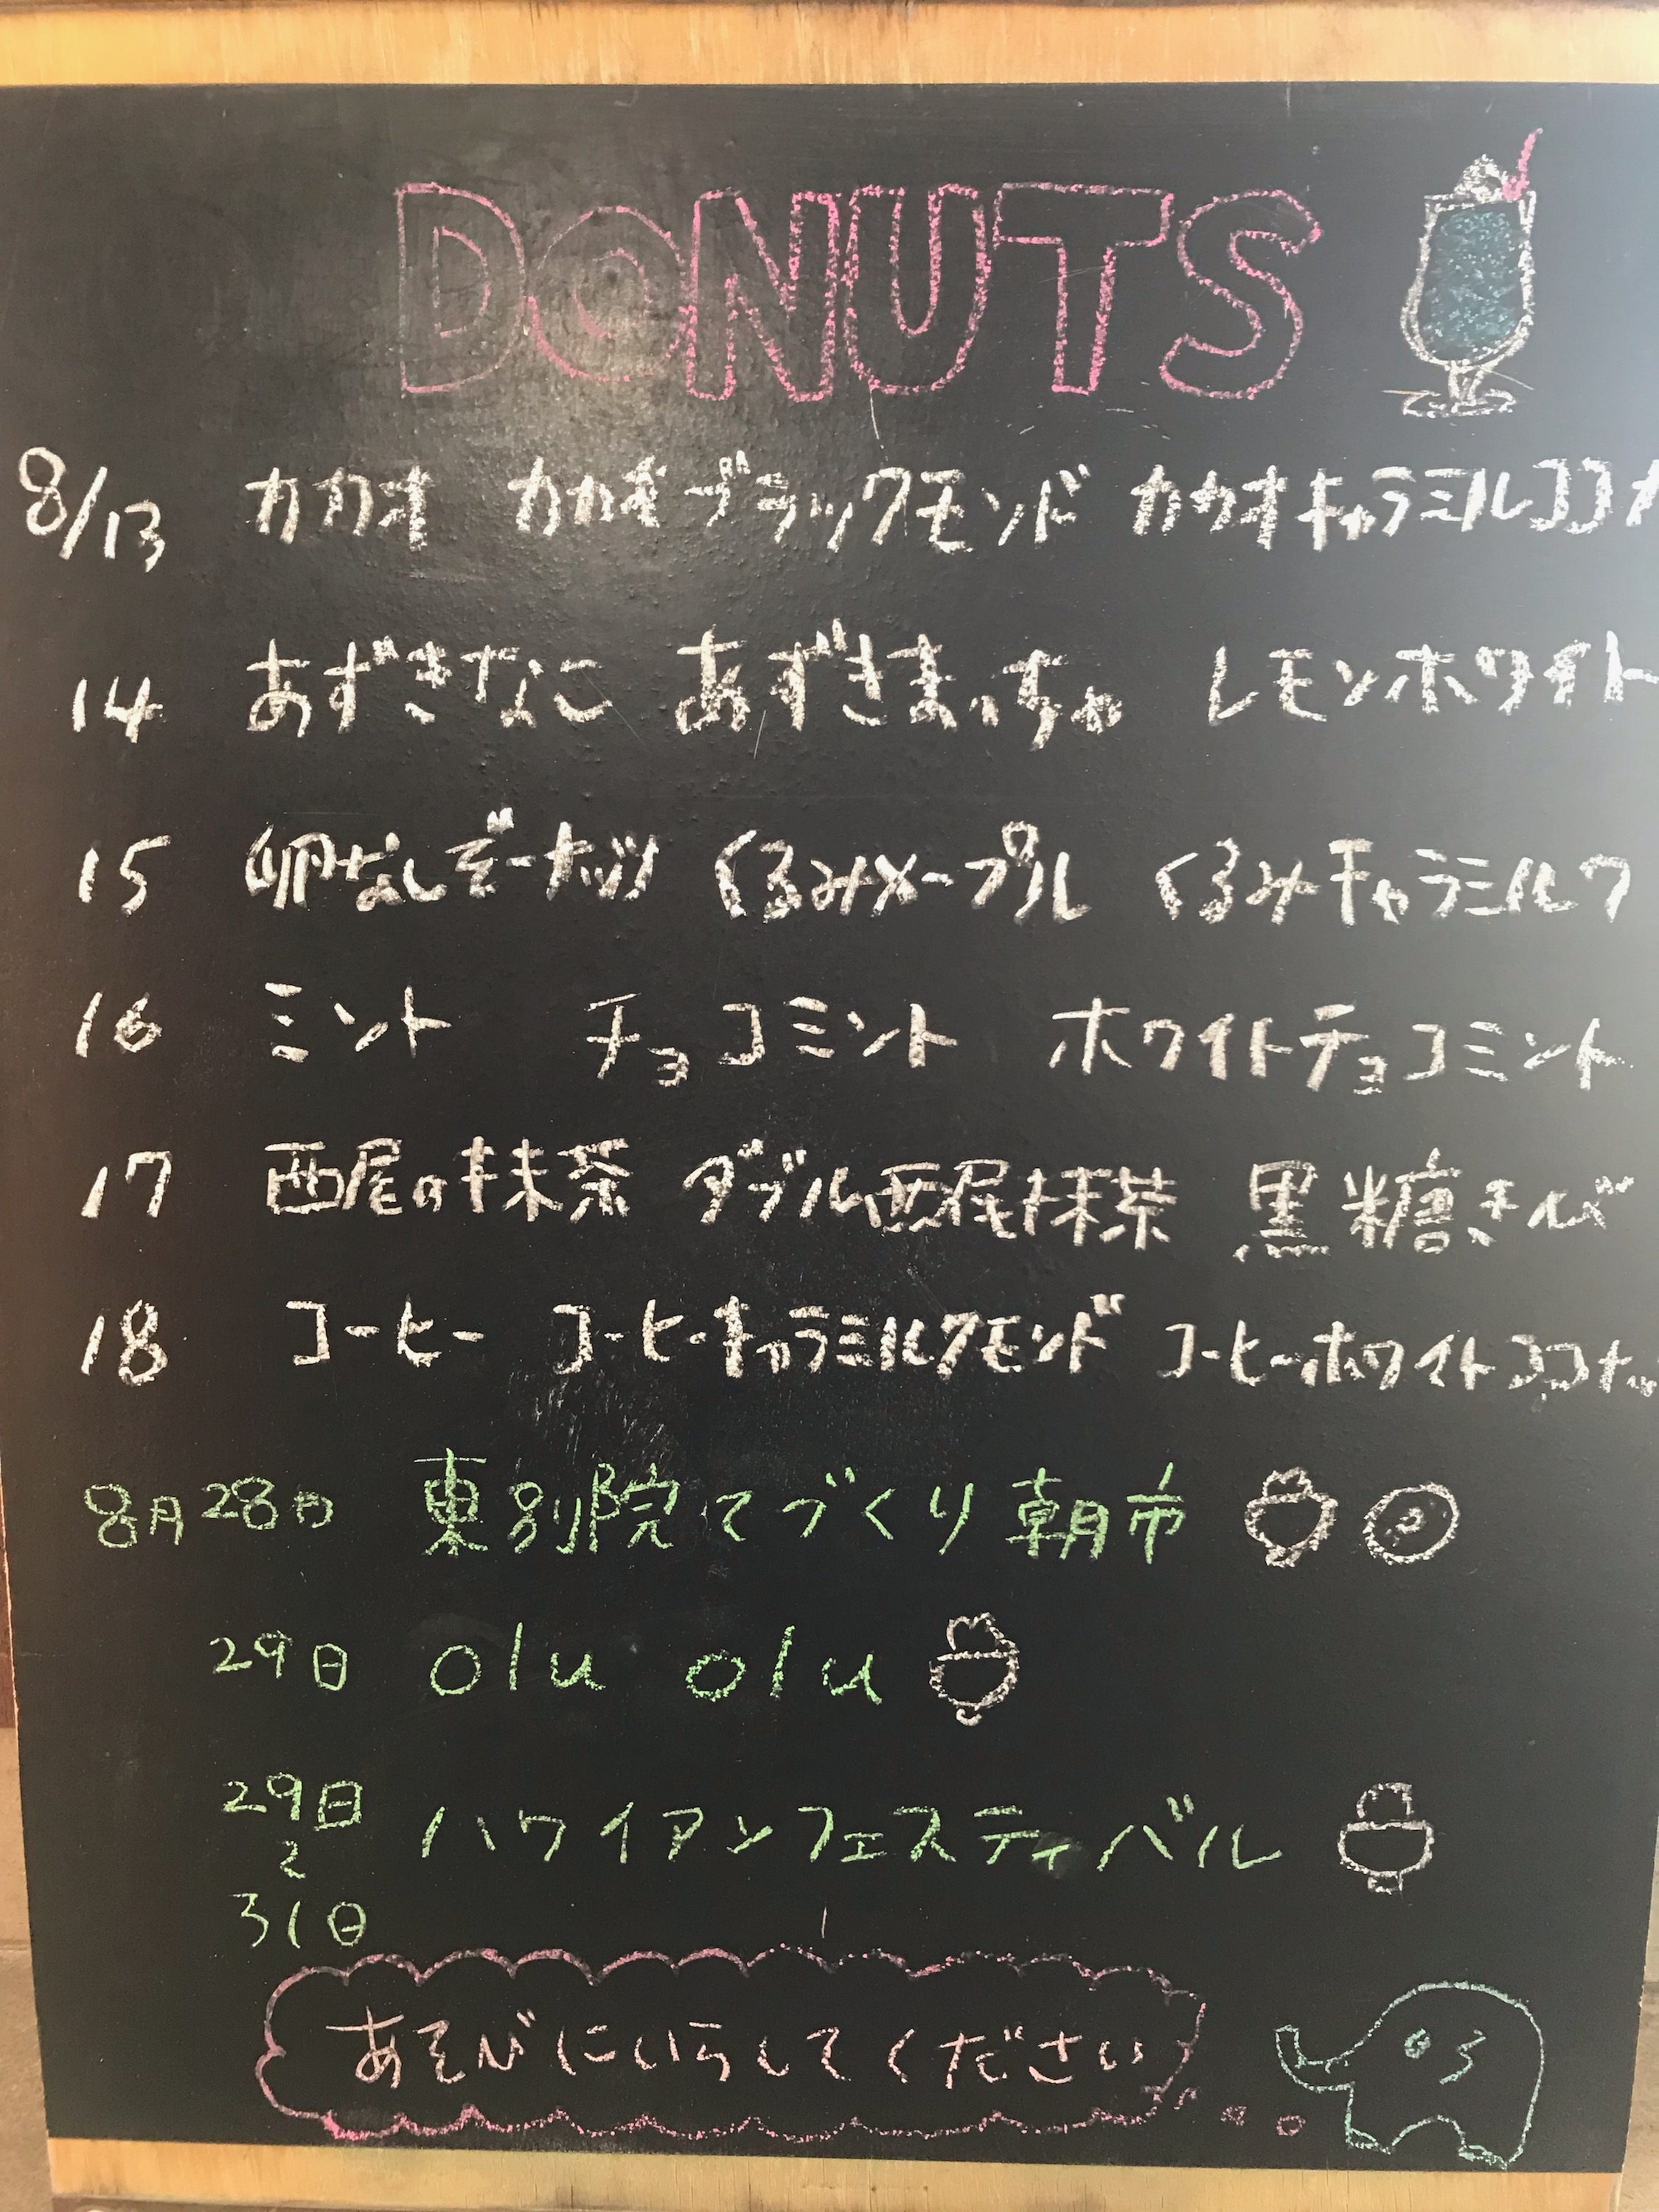 DONUTS
8/13 カカオ カカオブラックアモンド カカオキャラミルココナ
14 あずきなこ あずきまっちゃ レモンホワイト
15 卵なしドーナッツ くるみメープル くるみキャラミルク
16 ミント チョコミント ホワイトチョコミント
17 西尾の抹茶 ダブル西尾抹茶 黒糖きび
18 コーヒー コーヒーキャラミルクアモンド コーヒーホワイトココナッ
8月28日 東別院てづくり朝市
29日 olu olu
29日
〜 ハワイアンフェスティバル
31日
あそびにいらしてください